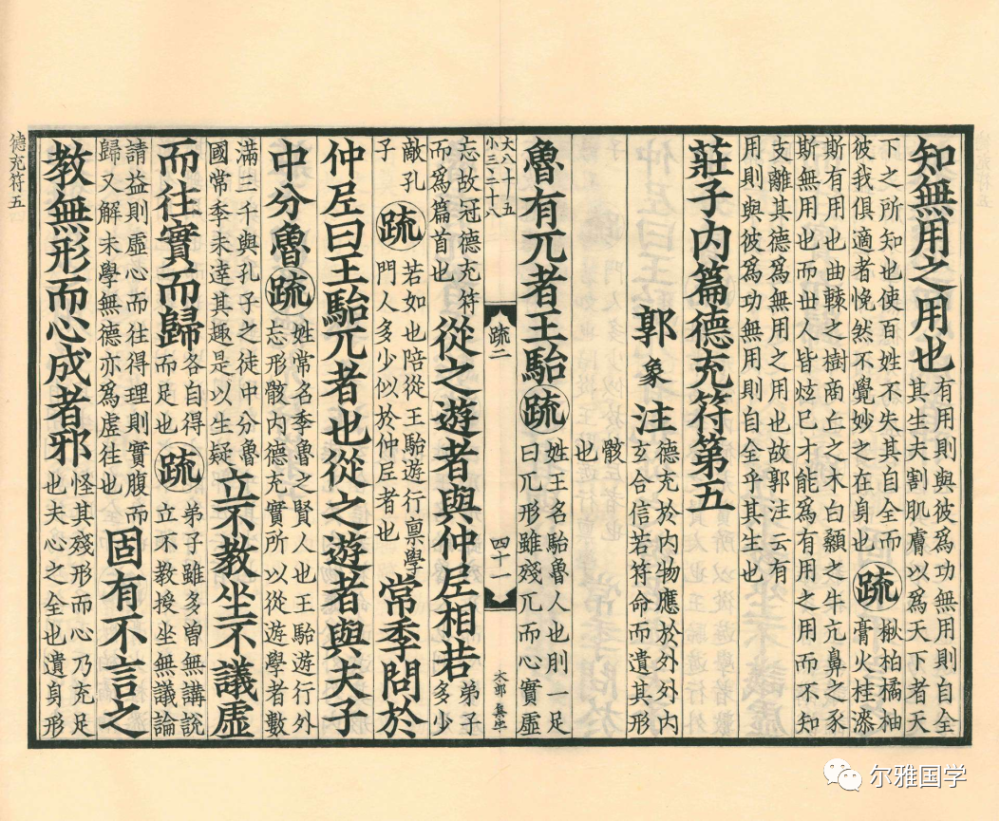 知無用之用也
有用則與彼爲功無用則自全
其生夫割肌膚以爲天下者天
下之所知也使百姓不失其自全而
彼我俱適者悗然不覺妙之在身也
疏
楸柏橘柚
膏火桂漆
斯有用也曲轅之樹商丘之木白顙之牛亢鼻之豕
斯無用也而世人皆炫己才能爲有用之用而不知
支離其德爲無用之用也故郭注云有
用則與彼爲功無用則自全乎其生也
莊子内篇德充符第五
郭象注
德充於内物應於外外内
玄合信若符命而遺其形
骸
也
魯有兀者王駘
疏
姓王名駘魯人也刖一足
曰兀形雖殘兀而心實虛
大八十五
小三二十八
疏二
四十一
忘故冠德充符
而爲篇首也
從之遊者與仲尼相若
弟子
多少
敵孔
子
疏
若如也陪從王駘遊行禀學
門人多少似於仲尼者也
常季問於
仲尼曰王駘兀者也從之遊者與夫子
中分魯
疏
姓常名季魯之賢人也王駘遊行外
忘形骸内德充實所以從遊學者數
滿三千與孔子之徒中分魯
國常季未達其趣是以生疑
立不教坐不議虛
而往實而歸
各自得
而足也
疏
弟子雖多曽無講說
立不教授坐無議論
請益則虛心而往得理則實腹而
歸又解未學無德亦爲虛往也
固有不言之
教無形而心成者邪
怪其殘形而心乃充足
也夫心之全也遺身形
德充符五
尔雅国学